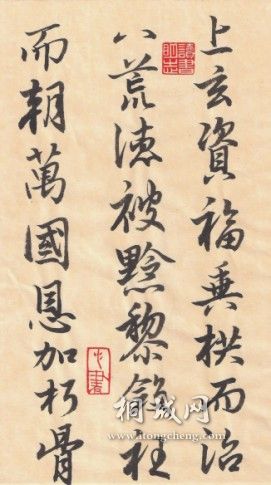 上玄資福垂拱而治
八荒德被黔黎斂衽
而朝萬國恩加朽骨
桐城网
www.itongcheng.com